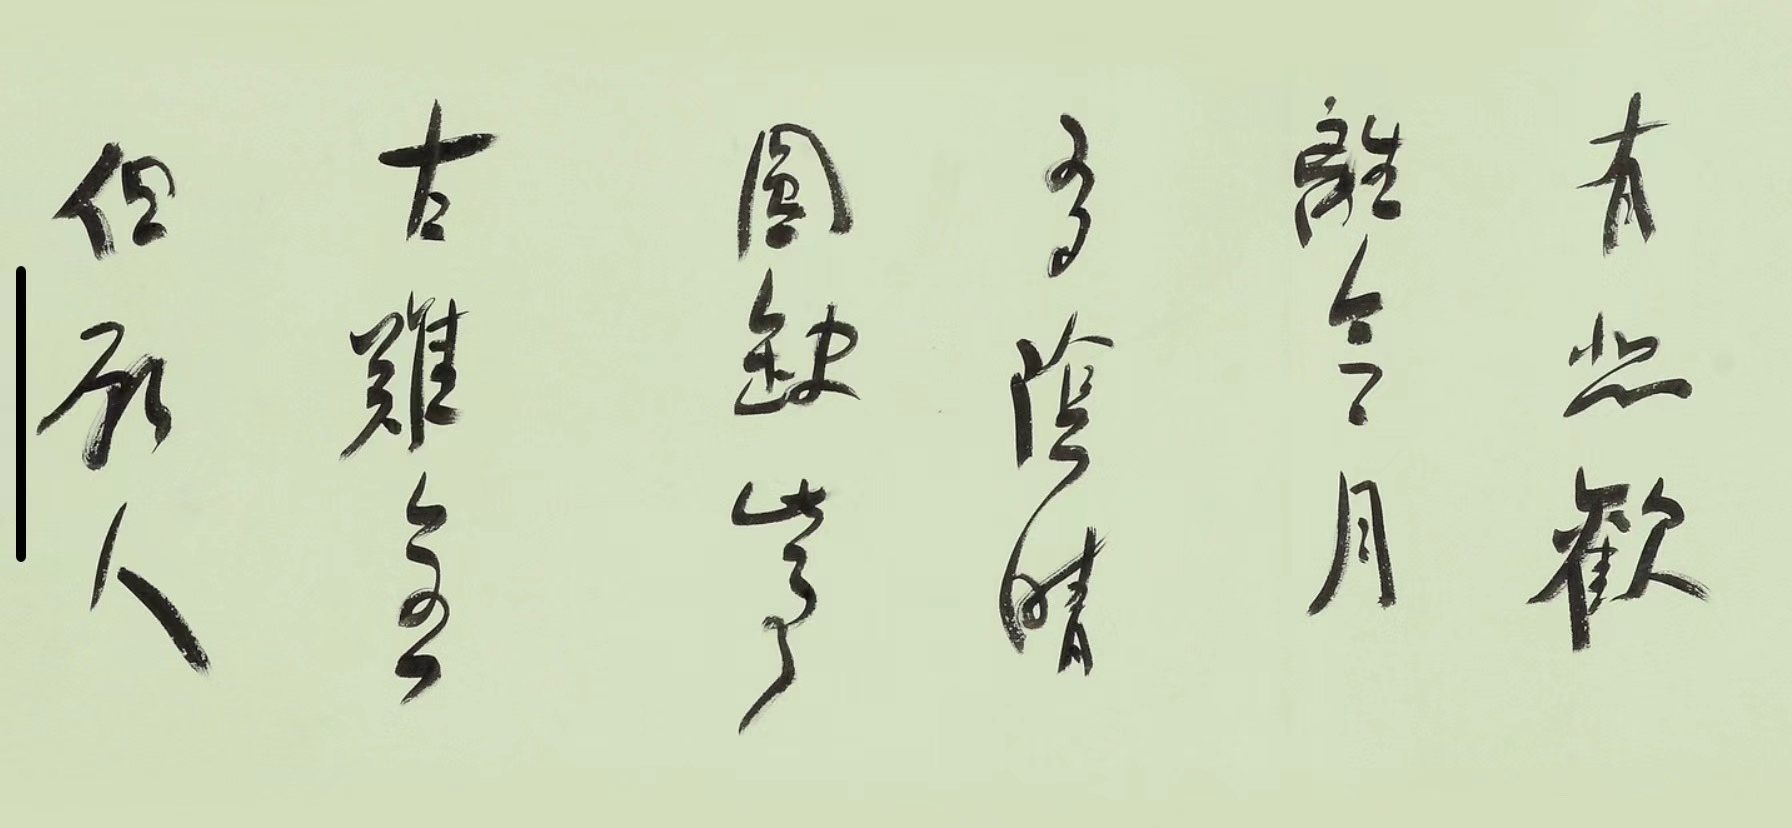 有悲歡
離合月
有陰晴
圓缺此事
古難全
但願人